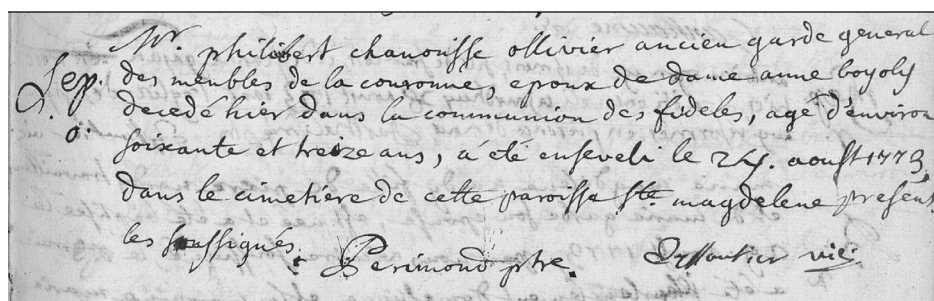 Mr. philibert chanouisse ollivier ancien garde general
Sep. des meubles de la couronne, epoux de dame anne boyoly
decedé hier dans la communion des fideles, agé d'environ
soixante et treize ans, a été enseveli le 24. aoust 1773,
dans le cimetière de cette paroisse ste. magdelene présent
les soussignés.
Perimond ptre. vic: